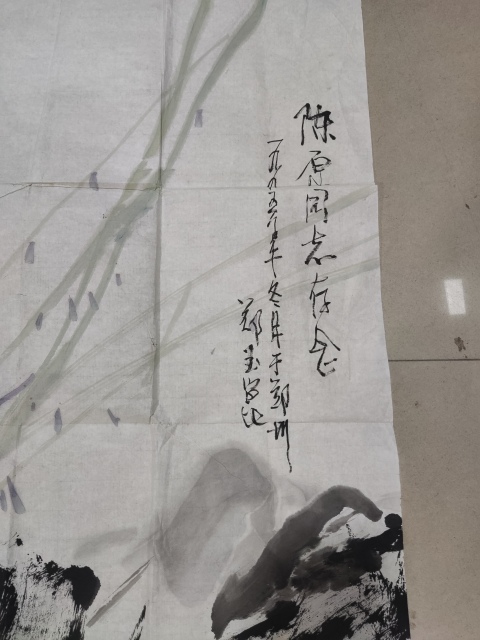 陈原同志存念
一九九五年冬月于郑州
郑玉昆